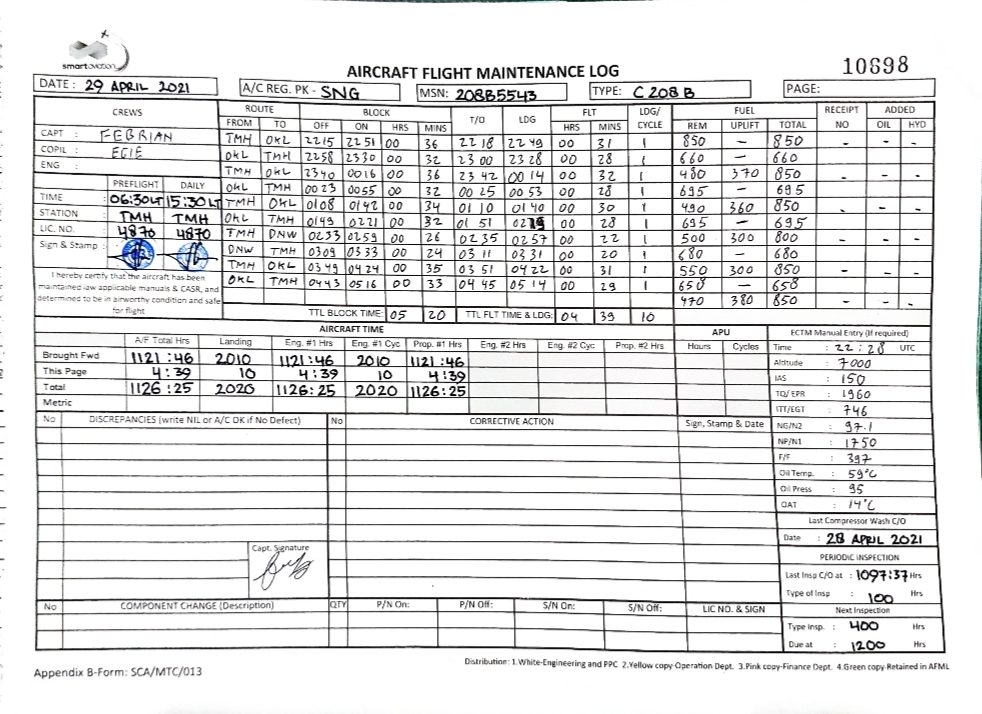 smartaviation
AIRCRAFT FLIGHT MAINTENANCE LOG
10898
DATE : 29 APRIL 2021 A/C REG. PK - SNG MSN: 208B5543 TYPE: C 208 B PAGE:
CREWS ROUTE BLOCK T/O LDG FLT LDG/ CYCLE FUEL RECEIPT NO ADDED
FROM TO OFF ON HRS MINS HRS MINS REM UPLIFT TOTAL OIL HYD
CAPT : FEBRIAN
COPIL : EGIE
ENG :
PREFLIGHT DAILY
TIME : 06:30LT 15:30LT
STATION : TMH TMH
LIC. NO. : 4870 4870
Sign & Stamp :
I hereby certify that the aircraft has been
maintained iaw applicable manuals & CASR, and
determined to be in airworthy condition and safe
for flight
TMH OKL 2215 2251 00 36 22 18 22 49 00 31 1 850 – 850 - - -
OKL TMH 2258 2330 00 32 23 00 23 28 00 28 1 660 – 660
TMH OKL 2340 0016 00 36 23 42 00 14 00 32 1 480 370 850 - - -
OKL TMH 0023 0055 00 32 00 25 00 53 00 28 1 695 – 695
TMH OKL 0108 0142 00 34 01 10 01 40 00 30 1 490 360 850 - - -
OKL TMH 0149 0221 00 32 01 51 0219 00 28 1 695 – 695
TMH DNW 0233 0259 00 26 02 35 02 57 00 22 1 500 300 800 - - -
DNW TMH 0309 0333 00 24 03 11 03 31 00 20 1 680 – 680
TMH OKL 0349 0424 00 35 03 51 04 22 00 31 1 550 300 850 - - -
OKL TMH 0443 0516 00 33 04 45 05 14 00 29 1 658 – 658
470 380 850 - - -
TTL BLOCK TIME: 05 20 TTL FLT TIME & LDG: 04 39 10
AIRCRAFT TIME APU
A/F Total Hrs Landing Eng. #1 Hrs Eng. #1 Cyc Prop. #1 Hrs Eng. #2 Hrs Eng. #2 Cyc Prop. #2 Hrs Hours Cycles
Brought Fwd 1121:46 2010 1121:46 2010 1121:46
This Page 4:39 10 4:39 10 4:39
Total 1126:25 2020 1126:25 2020 1126:25
Metric
ECTM Manual Entry (If required)
Time : 22:28 UTC
Altitude : 7000
IAS : 150
TQ/ EPR : 1960
ITT/EGT : 746
NG/N2 : 97.1
NP/N1 : 1750
F/F : 397
Oil Temp. : 59°C
Oil Press : 95
OAT : 14°C
Last Compressor Wash C/O
Date : 28 APRIL 2021
PERIODIC INSPECTION
Last Insp C/O at : 1097:37 Hrs
Type of Insp : 100 Hrs
Next Inspection
Type Insp. : 400 Hrs
Due at : 1200 Hrs
No DISCREPANCIES (write NIL or A/C OK if No Defect) No CORRECTIVE ACTION Sign, Stamp & Date
Capt. Signature
No COMPONENT CHANGE (Description) QTY P/N On: P/N Off: S/N On: S/N Off: LIC NO. & SIGN
Distribution: 1.White-Engineering and PPC 2.Yellow copy-Operation Dept. 3.Pink copy-Finance Dept. 4.Green copy-Retained in AFML
Appendix B-Form: SCA/MTC/013